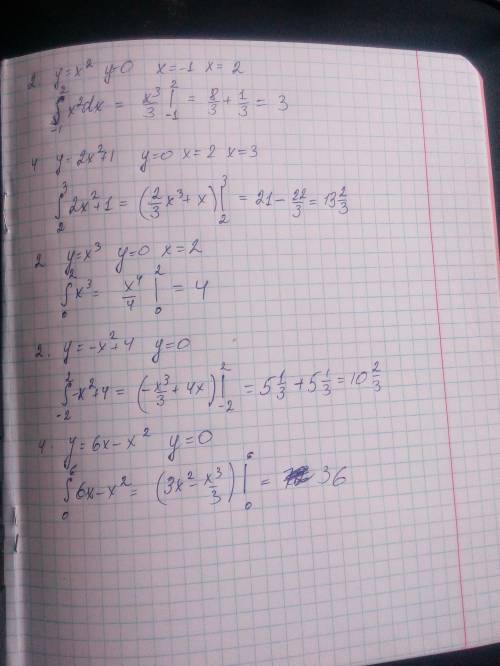 2. y=x² y=0 x=-1 x=2
∫₋₁² x²dx = x³/3 |₋₁² = 8/3 + 1/3 = 3
4 y=2x²+1 y=0 x=2 x=3
∫₂³ 2x²+1 = (2/3 x³+x) |₂³ = 21 - 22/3 = 13 2/3
2 y=x³ y=0 x=2
∫₀² x³ = x⁴/4 |₀² = 4
2. y=-x²+4 y=0
∫₋₂² -x²+4 = (-x³/3 + 4x) |₋₂² = 5 1/3 + 5 1/3 = 10 2/3
4. y=6x-x² y=0
∫₀⁶ 6x-x² = (3x² - x³/3) |₀⁶ = 36